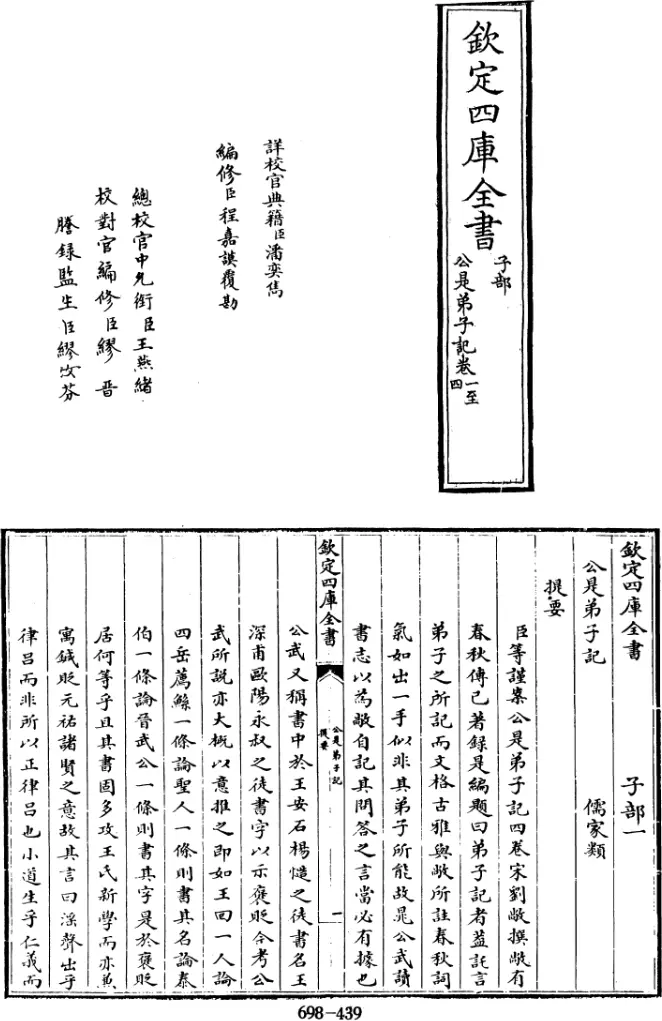 欽定四庫全書
子部
公是弟子記卷一至四
詳校官典籍臣潘奕雋
編修臣程嘉謨覆勘
總校官中允銜臣王燕緒
校對官編修臣繆晉
謄錄監生臣繆汝芬
欽定四庫全書 子部一
公是弟子記 儒家類
提要
臣等謹案公是弟子記四卷宋劉敞撰敞有
春秋傳已著錄是編題曰弟子記者葢託言
弟子之所記而文格古雅與敞所註春秋詞
氣如出一手似非其弟子所能故晁公武讀
書志以為敞自記其問答之言當必有據也
欽定四庫全書
公是弟子記
提要
一
公武又稱書中於王安石楊慥之徒書名王
深甫歐陽永叔之徒書字以示褒貶今考公
武所說亦大概以意推之即如王回一人論
四岳薦鯀一條論聖人一條則書其名論泰
伯一條論晉武公一條則書其字是於褒貶
居何等乎且其書固多攻王氏新學而亦兼
寓鍼貶元祐諸賢之意故其言曰淫聲出乎
律呂而非所以正律呂也小道生乎仁義而
698-439